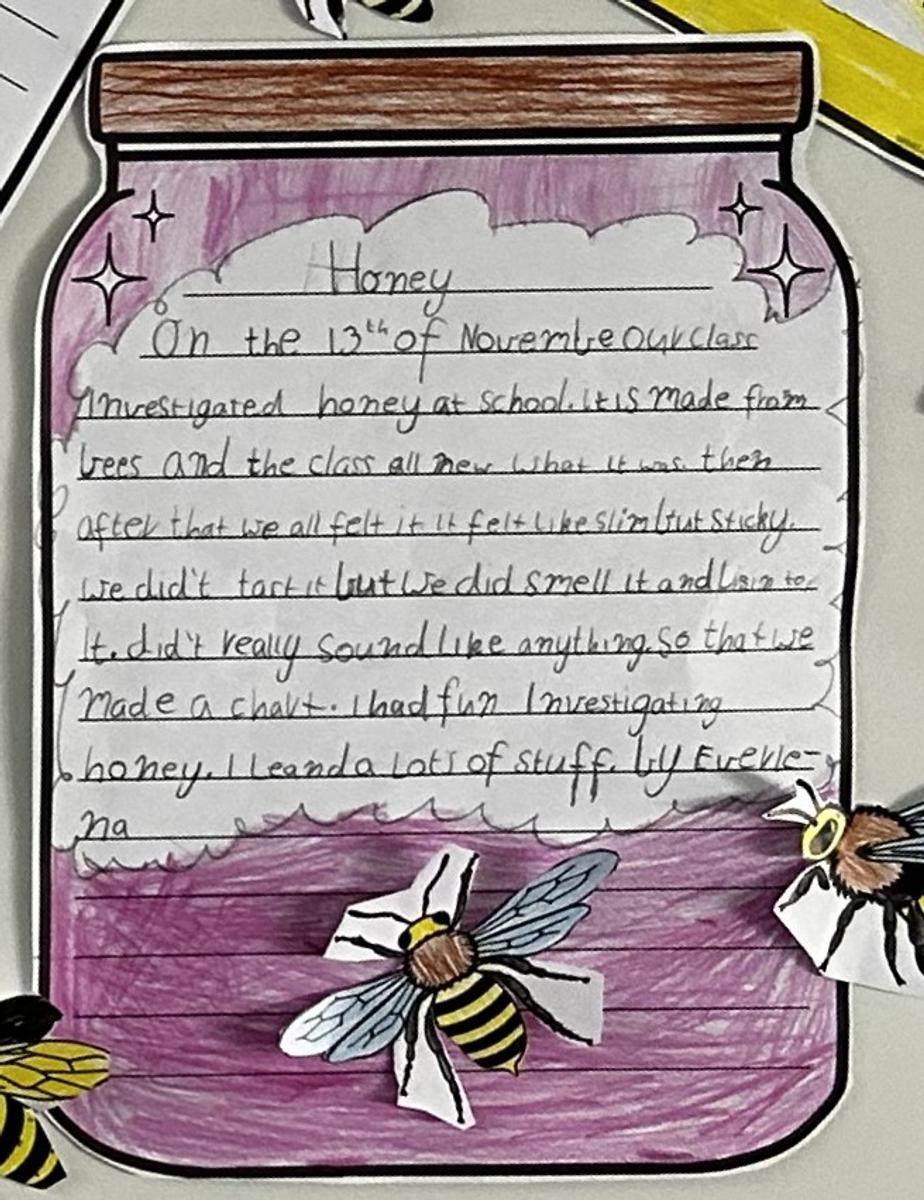 Honey
On the 13th of Novembe Our class
Investigated honey at school. it is made from
bees and the class all new what it was. then
after that we all felt it it felt like slim but sticky.
we did't tast it but we did smell it and lisin to
it. did't really sound like anything. So that we
made a chart. I had fun Investigating
honey. I leand a lots of stuff. by Everle-
na